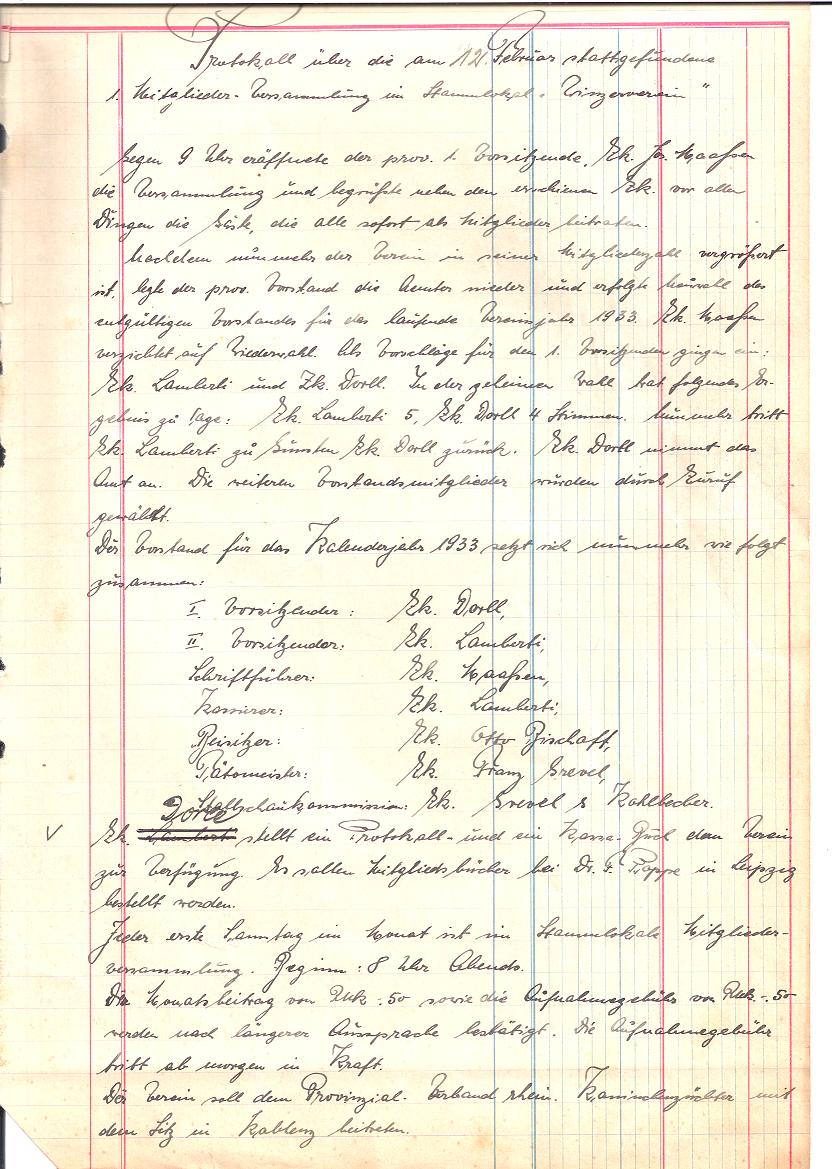 Protokoll über die am 12. Februar stattgefundene
1. Mitglieder-Versammlung im Stammlokal „Winzerverein"
Gegen 9 Uhr eröffnete der prov. 1. Vorsitzende, Zk. Jos. Maaßen
die Versammlung und begrüßte neben den erschienen Zk. vor allen
Dingen die Gäste, die alle sofort als Mitglieder beitraten.
Nachdem nunmehr der Verein in seiner Mitgliederzahl vergrößert
ist, legte der prov. Vorstand die Aemter nieder und erfolgte Neuwahl des
entgültigen Vorstandes für das laufende Vereinsjahr 1933. Zk. Maaßen
verzichtet auf Wiederwahl. Als Vorschläge für den 1. Vorsitzenden gingen ein:
Zk. Lamberti und Zk. Dorll. In der geheimen Wahl trat folgendes Er-
gebnis zu Tage: Zk. Lamberti 5, Zk. Dorll 4 Stimmen. Nunmehr tritt
Zk. Lamberti zu Gunsten Zk. Dorll zurück. Zk. Dorll nimmt das
Amt an. Die weiteren Vorstandsmitglieder wurden durch Zuruf
gewählt.
Der Vorstand für das Kalenderjahr 1933 setzt sich nunmehr wie folgt
zusammen:
I. Vorsitzender: Zk. Dorll,
II. Vorsitzender: Zk. Lamberti,
Schriftführer: Zk. Maaßen,
Kassierer: Zk. Lamberti,
Beisitzer: Zk. Otto Bischoff,
Tätomeister: Zk. Franz Grevel,
Stallschaukommission: Zk. Grevel & Kohlbecher.
Zk. Lamberti Dorll stellt ein Protokoll- und ein Kassa-Buch dem Verein
zur Verfügung. Es sollen Mitgliedsbücher bei Dr. F. Poppe in Leipzig
bestellt werden.
Jeder erste Samstag im Monat ist im Stammlokale Mitglieder-
versammlung. Beginn: 8 Uhr Abends.
Der Monatsbeitrag von RMk -.50 sowie die Aufnahmegebühr von RMk. -.50
werden nach längerer Aussprache bestätigt. Die Aufnahmegebühr
tritt ab morgen in Kraft.
Der Verein soll dem Provinzial-Verband rhein. Kaninchenzüchter mit
dem Sitz in Koblenz beitreten.